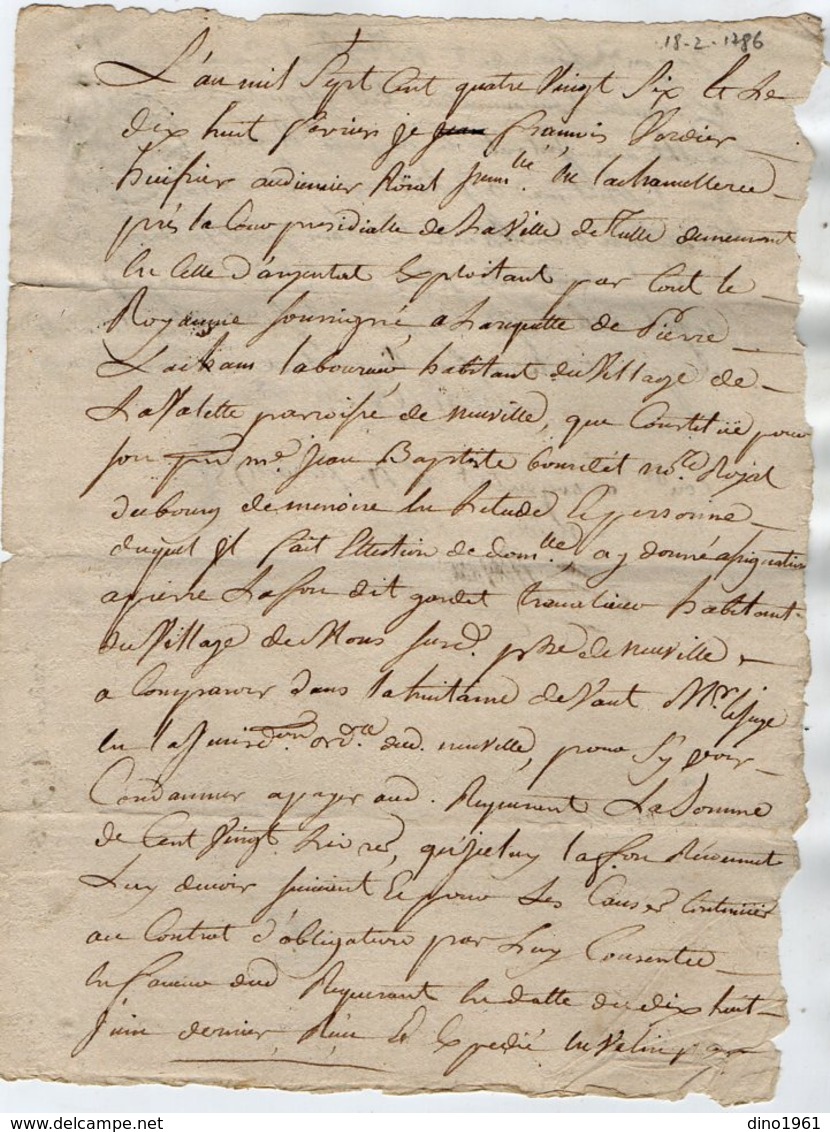 18-2-1786
L'an mil Sept Cent quatre Vingt Six et Le
dix huit fevrier je jean francois Verdier
huissier audiencier Roial en la chancellerie
prés la Cour presidialle de La Ville de Tulle demeurant
en Celle d'argentat Exploitant par tout le
Royaume soussigné, a La requette de Pierre
laboureur, habitant du Village de
La Valette parroisse de neuville, que Constitüe pour
son pr. me. jean Baptiste no.re Royal
du bourg de menoire en L'etude et personne
duquel il fait Ellection de dom.lle, ay donné assignation
a pierre Lafon dit gardet travailleur habitant
du Village de Mons susd. psse de neuville
a Comparoir dans la huitaine devant Mr. le juge
en la jurisd.on ord.re dud. neuville, pour s'y voir
Condamner a payer aud. Requerant La Somme
de Cent Vingt Livres, qu'iceluy laffon Reconnut
Luy devoir Et pour Les Causes Contenües
au Contrat d'obligation par Luy Consentie
en faveur dud Requerant en datte du dix huit
juin dernier, Et Expedié en Velin par
dino1961